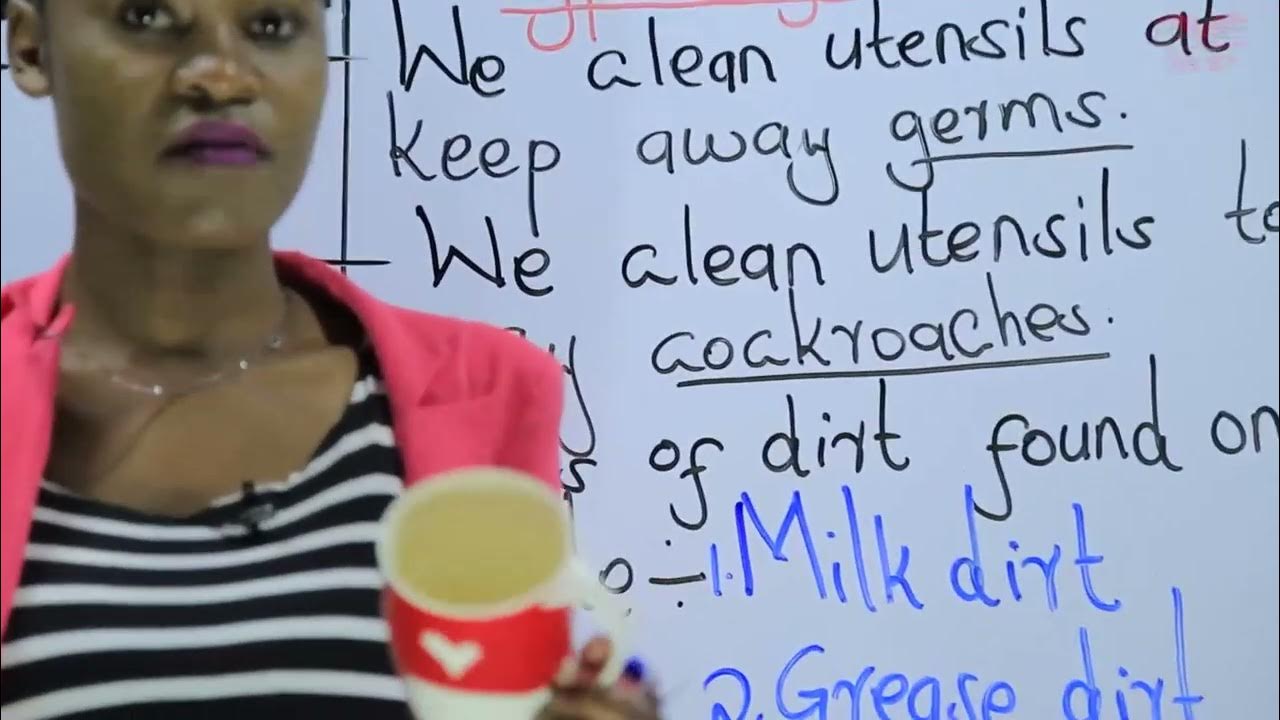 We alean utensils at
keep away germs.
We alean utensils to
y aoakroaches.
s of dirt found on
1. Milk dirt
2. Grease dirt